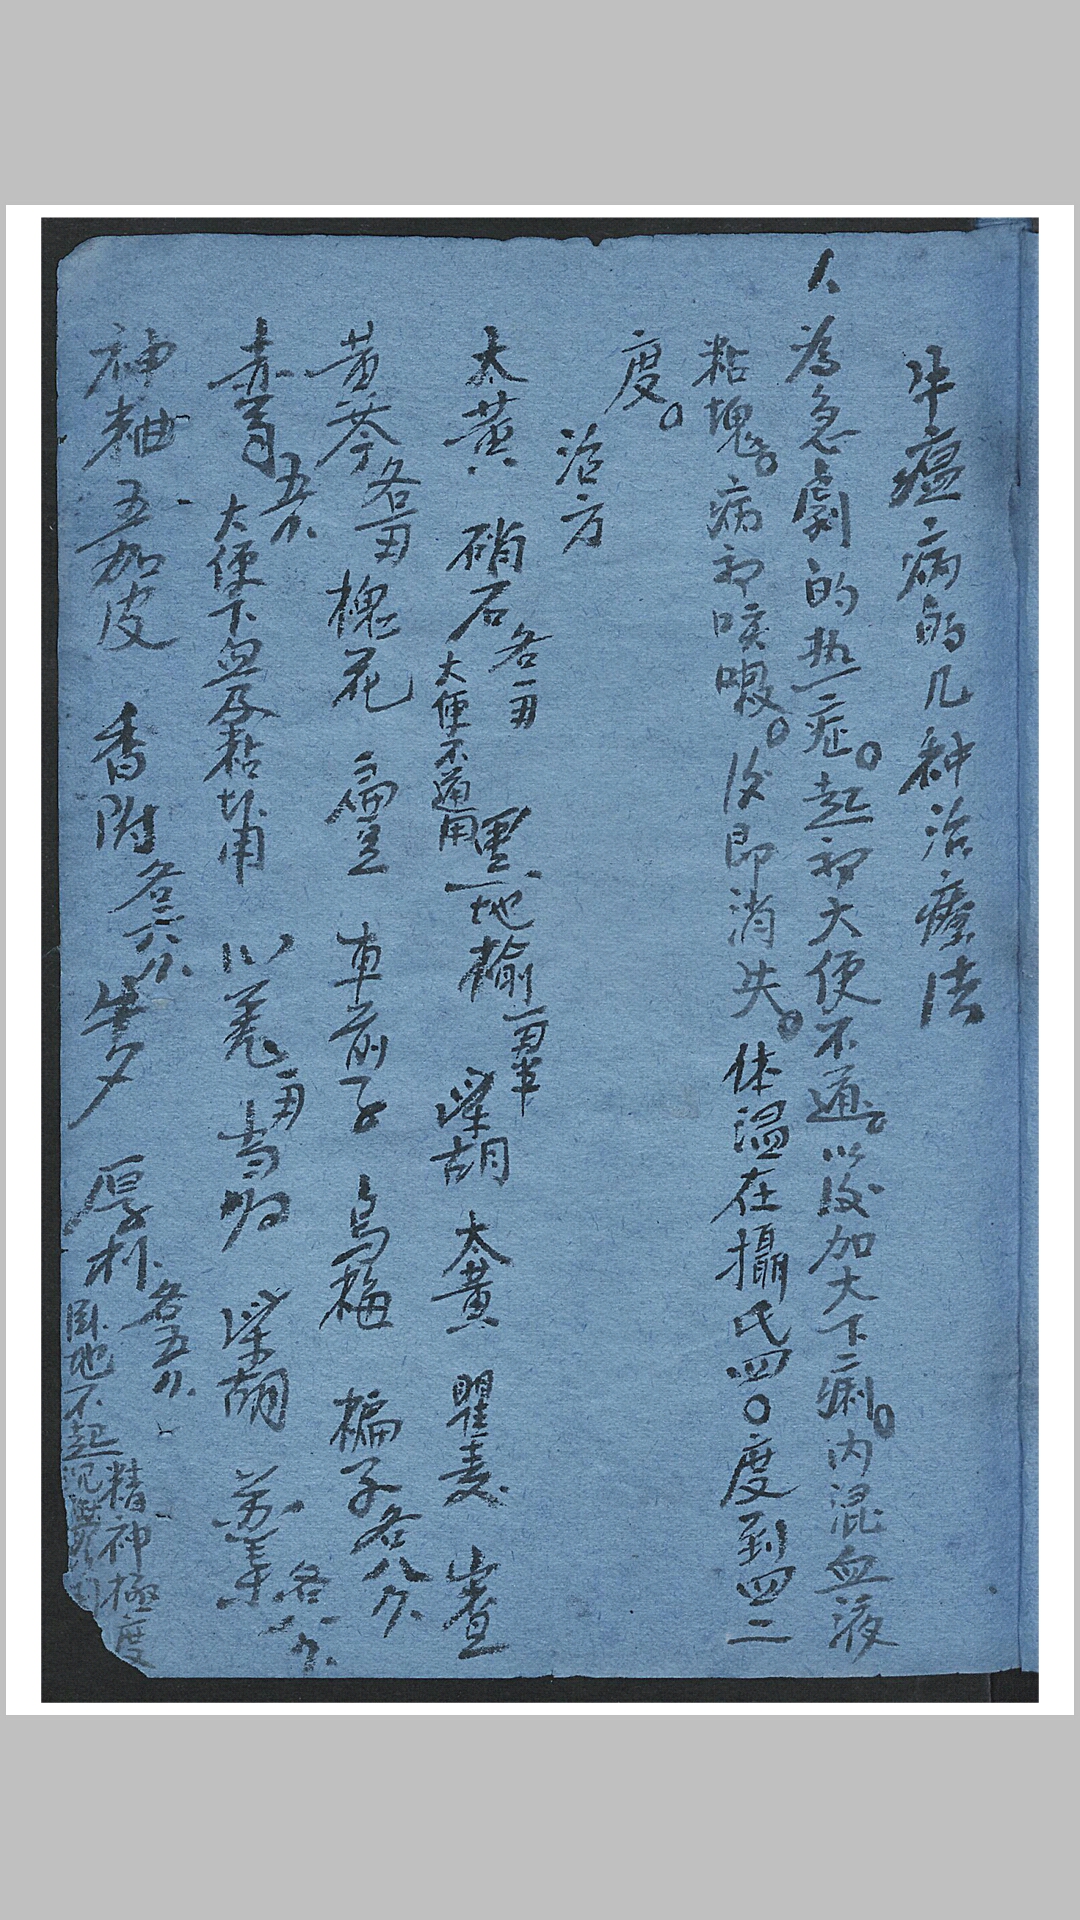 牛瘟病的几种治療法
人 為急劇的热症。起初大便不通。以後加大下痢。内混血液
粘塊。病初咳嗽。後即消失。体温在攝氏四〇度到四二
度。
治方
大黄 硝石 各一两 大便不通用 黑地榆 一两半 柴胡 大黄 瞿麦 山查
黄芩 各一两 槐花 扁豆 車前子 烏梅 楄子 各八分
赤芍 五分 大便下血及粘塊用 川羌 一两 当归 柴胡 苏葉 各八分
神粬 五加皮 香附 各六分 牛夕 厚朴 各五分 精神極度
卧地不起